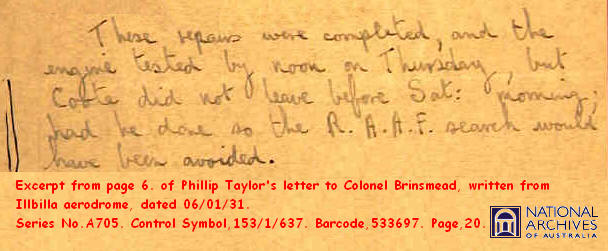 These repairs were completed, and the
engine tested by noon on Thursday, but
Coote did not leave before Sat: morning;
had he done so the R.A.A.F. search would
have been avoided.
Excerpt from page 6. of Phillip Taylor's letter to Colonel Brinsmead, written from
Illbilla aerodrome, dated 06/01/31.
Series No.A705. Control Symbol,153/1/637. Barcode,533697. Page,20.
NATIONAL
ARCHIVES
OF AUSTRALIA